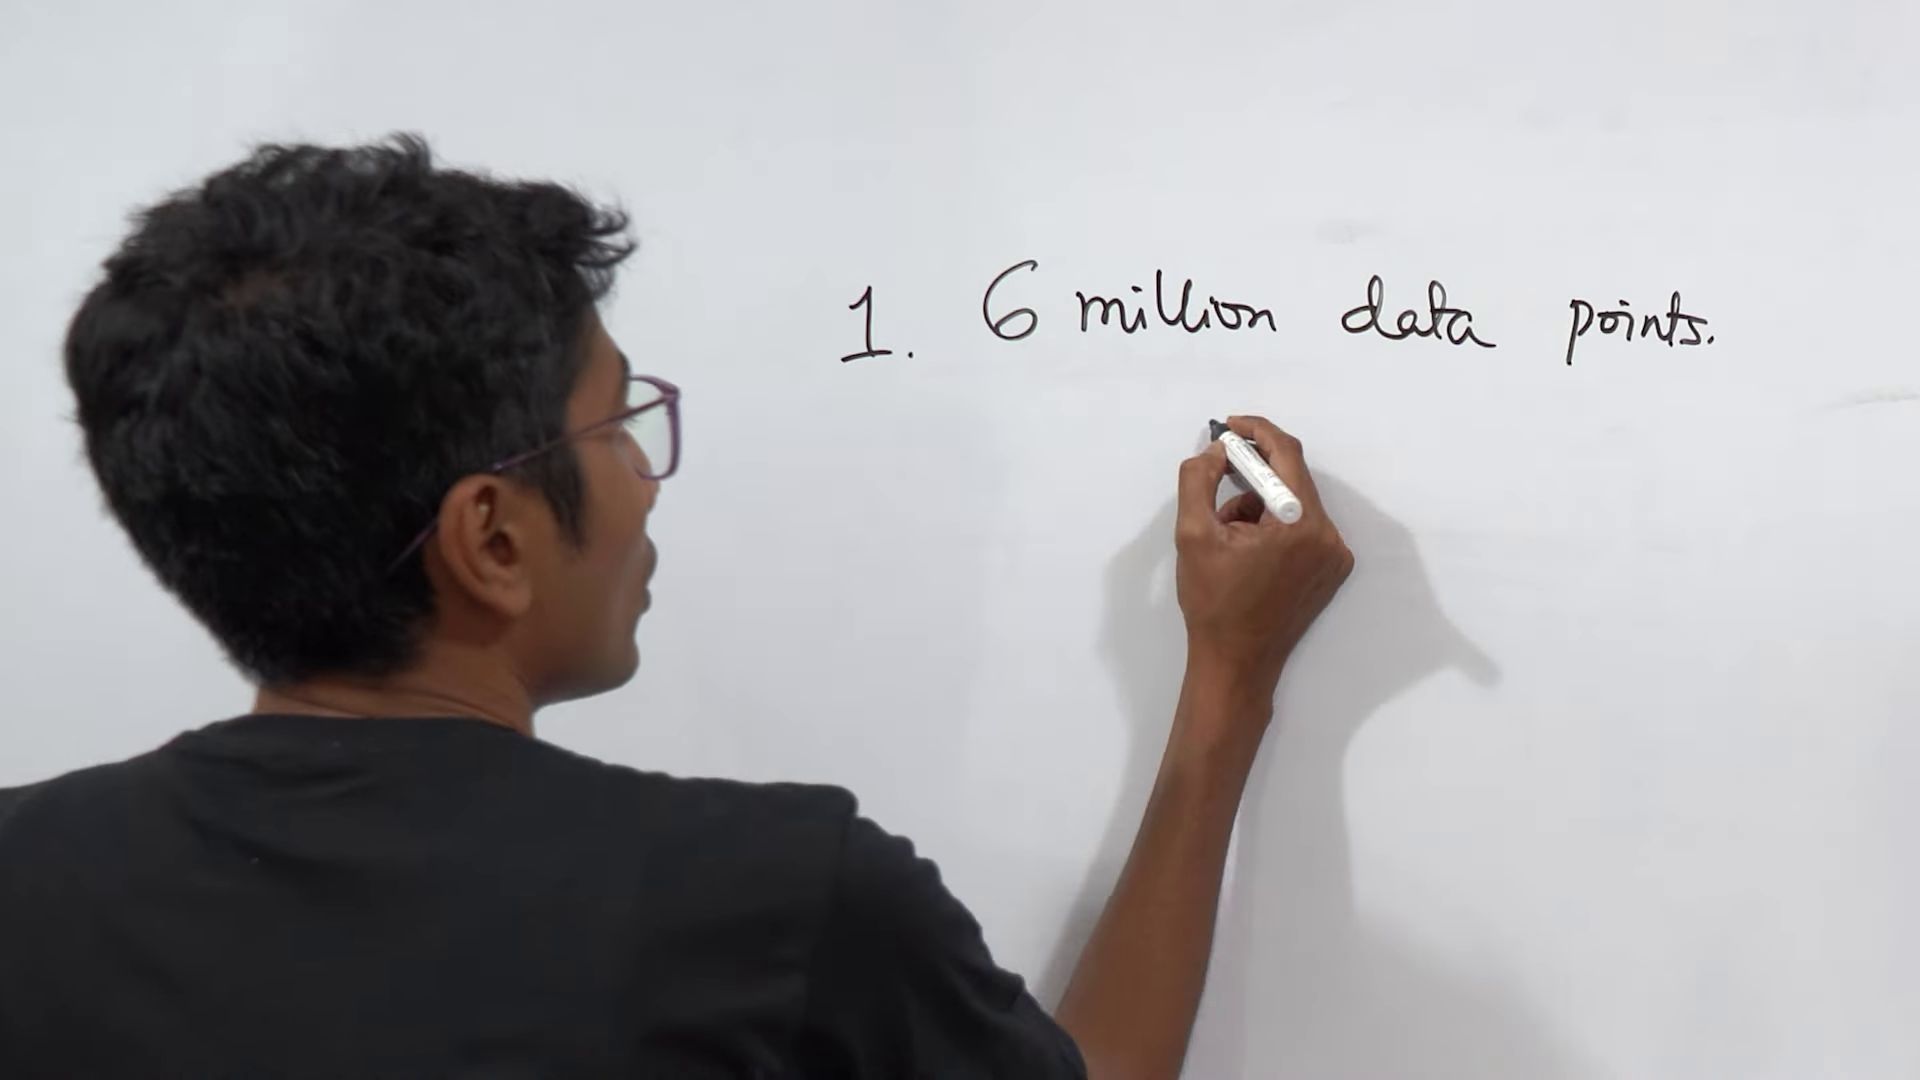 1. 6 million data points.